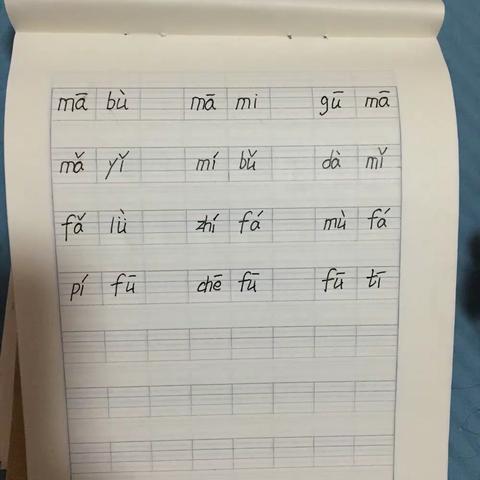 mā bù mā mi gū mā
mǎ yǐ mí bǔ dà mǐ
fǎ lǜ zhí fá mù fá
pí fū chē fū fū tī